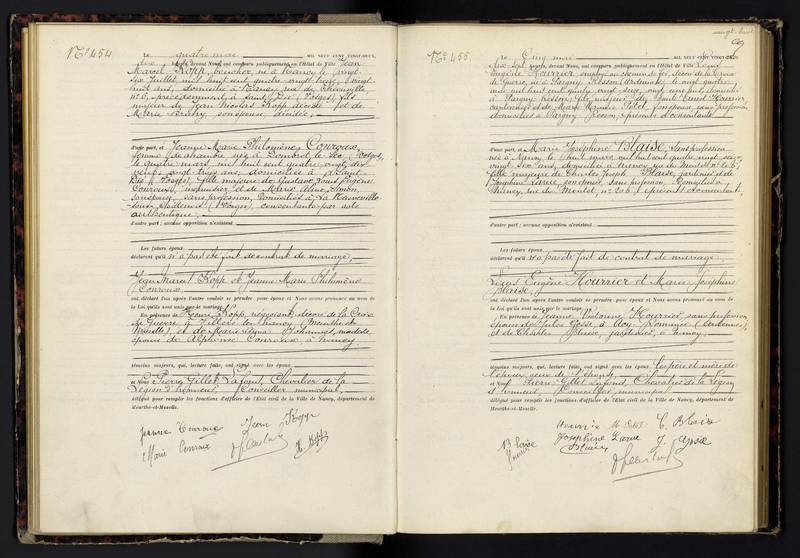 N° 454
Le quatre mai MIL NEUF CENT VINGT-DEUX,
dix heures, devant Nous, ont comparu publiquement en l'Hôtel de Ville Jean
Marcel Kopp, né à Nancy, le vingt
six Juillet mil huit cent quatre vingt treize, vingt
huit ans, domicilié à Jarney, rue de Thionville,
n° 6, précédemment à Saint Dié (Vosges), fils
majeur de Jean Nicolas Kopp décédé et de
Marie son épouse, décédée;
d'une part, et Jeanne Marie Philomène Conroux,
femme de chambre née à Dombrot le Sec, Vosges,
le quatre mars mil huit cent quatre vingt dix
neuf, vingt trois ans, domiciliée à Saint
Dié (Vosges), fille majeure de Gustave Louis Eugène
Conroux, menuisier et de Marie Aline Simon,
son épouse, sans profession, domiciliés à La Neuveville
sous Châtenois (Vosges), consentants par acte
authentique;
d'autre part; aucune opposition n'existant
Les futurs époux
déclarent qu'il n'a pas été fait de contrat de mariage,
Jean Marcel Kopp et Jeanne Marie Philomène
Conroux
ont déclaré l'un après l'autre vouloir se prendre pour époux et Nous avons prononcé au nom de
la Loi qu'ils sont unis par le mariage.
En présence de Henri Kopp, négociant, décoré de la Croix
de Guerre à Villers les Nancy (Meurthe et
Moselle) et de Marie Anna Johannès, modiste,
épouse de Alphonse Conroux, à Nancy
témoins majeurs, qui, lecture faite, ont signé avec les époux
et Nous Pierre Gillet Lafond, Chevalier de la
Légion d'honneur, Conseiller municipal
délégué pour remplir les fonctions d'officier de l'Etat civil de la Ville de Nancy, département de
Meurthe-et-Moselle.
Jeanne Conroux Jean Kopp
Marie Conroux H. Kopp
N° 455
vingt-huit
Le Cinq mai MIL NEUF CENT VINGT-DEUX,
dix heures, devant Nous, ont comparu publiquement en l'Hôtel de Ville Louis
Eugène Hourrier employé au chemin de fer, décoré de la Croix
de Guerre, né à Pargny Resson (Ardennes), le vingt quatre
mil huit cent quatre vingt dix, ans, domicilié
à Pargny Resson, fils majeur de Ernest Hourrier,
et de Marie son épouse, sans profession
domiciliés à Pargny Resson, présents et consentants
d'une part, et Marie Joséphine Blaise, sans profession,
née à Nancy, le huit mil huit cent quatre vingt seize,
vingt six ans, domiciliée à Nancy rue du Montet n° 206,
fille majeure de Charles Joseph Blaise, jardinier et de
Joséphine Larue son épouse, sans profession, domiciliés à
Nancy, rue du Montet, n° 206, présents et consentants
d'autre part; aucune opposition n'existant
Les futurs époux
déclarent qu'il n'a pas été fait de contrat de mariage
Louis Eugène Hourrier et Marie Joséphine
Blaise
ont déclaré l'un après l'autre vouloir se prendre pour époux et Nous avons prononcé au nom de
la Loi qu'ils sont unis par le mariage.
En présence de Jeanne Hourrier, sans profession,
épouse de Jules Gosse, à (Ardennes),
et de Charles Blaise, jardinier, à Nancy
témoins majeurs, qui, lecture faite, ont signé avec les époux les père et mère de
l'épouse,
et Nous Pierre Gillet Lafond, Chevalier de la Légion
d'honneur, Conseiller municipal
délégué pour remplir les fonctions d'officier de l'Etat civil de la Ville de Nancy, département de
Meurthe-et-Moselle.
C. Blaise
Blaise Joséphine Larue